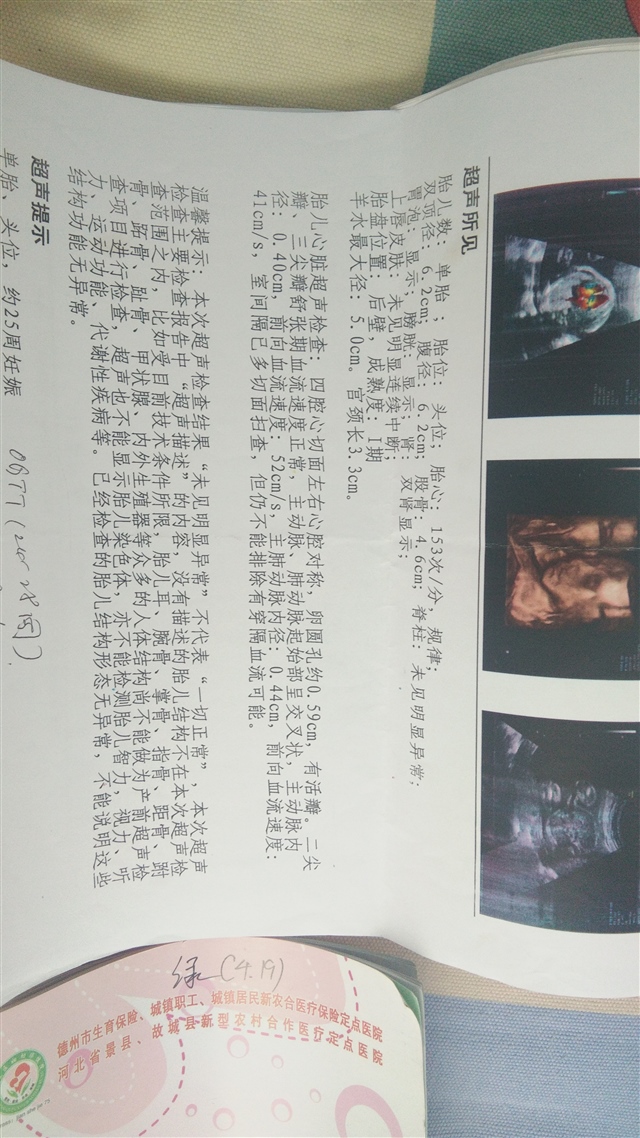 超声所见
胎儿数：单胎；胎位：头位；胎心：153次/分，规律；
双顶径：6.2cm；腹径：6.2cm；股骨：4.6cm；脊柱：未见明显异常；
胃泡：显示；膀胱：显示；肾：双肾显示；
上唇皮肤：未见明显连续中断；
胎盘位置：后壁，成熟度：I期
羊水最大径：5.0cm。宫颈长3.3cm。
胎儿心脏超声检查：四腔心切面左右心腔对称，卵圆孔约0.59cm，有活瓣。二尖
瓣、三尖瓣舒张期血流速度正常，主动脉、肺动脉起始部呈交叉状，主动脉内
径：0.40cm，前向血流速度：52cm/s，主肺动脉内径：0.44cm，前向血流速度：
41cm/s，室间隔已多切面扫查，但仍不能排除有穿隔血流可能。
温馨提示：本次超声检查结果“未见明显异常”不代表“一切正常”，本次超声
检查主要检查报告中“超声描述”的内容，没有描述的胎儿结构不在本次超声检
查范围之内，比如受目前技术条件所限，胎儿耳、腕骨、掌骨、指骨、距骨、跗
骨、跖骨、趾骨、甲状腺、内外生殖器等众多的人体结构尚不能做为产前超声检
查项目进行检查，超声也不能显示胎儿染色体，亦不能检测胎儿智力、视力、听
力、运动功能、代谢性疾病等。已经检查的胎儿结构形态无异常，不能说明这些
结构功能无异常。
超声提示
单胎、头位，约25周妊娠
OGTT（24-28周）
绿（4.19）
德州市生育保险、城镇职工、城镇居民新农合医疗保险定点医院
河北省景县、故城县新型农村合作医疗定点医院